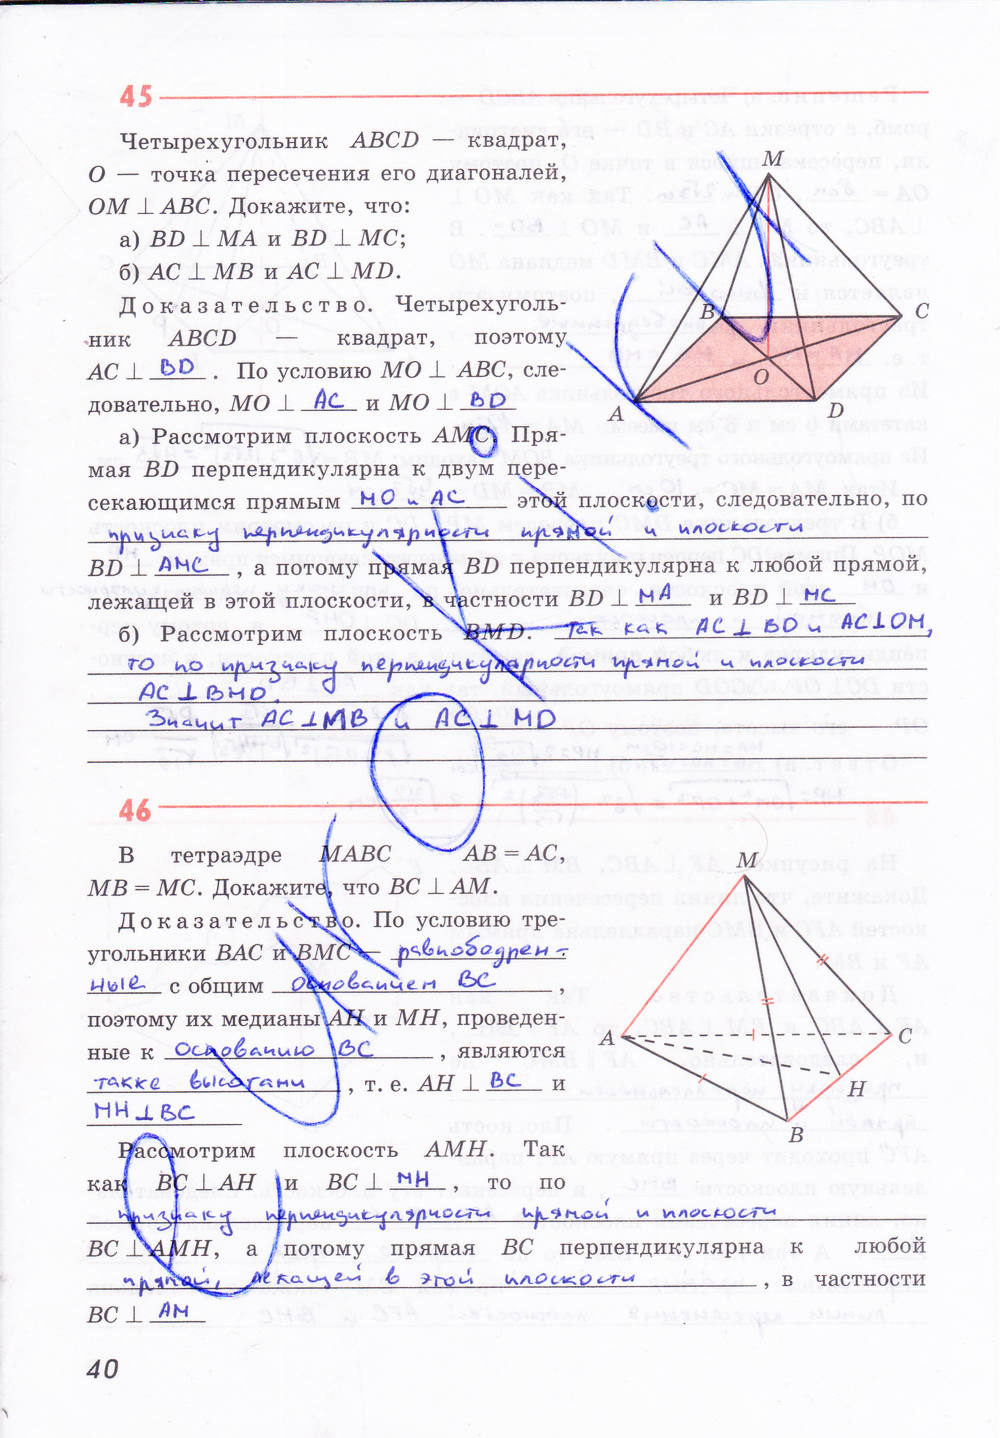 45
Четырехугольник ABCD — квадрат,
O — точка пересечения его диагоналей,
OM ⊥ ABC. Докажите, что:
а) BD ⊥ MA и BD ⊥ MC;
б) AC ⊥ MB и AC ⊥ MD.
Доказательство. Четырехуголь-
ник ABCD — квадрат, поэтому
AC ⊥ BD . По условию MO ⊥ ABC, сле-
довательно, MO ⊥ AC и MO ⊥ BD
а) Рассмотрим плоскость AMC. Пря-
мая BD перпендикулярна к двум пере-
секающимся прямым MO и AC этой плоскости, следовательно, по
признаку перпендикулярности прямой и плоскости
BD ⊥ AMC , а потому прямая BD перпендикулярна к любой прямой,
лежащей в этой плоскости, в частности BD ⊥ MA и BD ⊥ MC
б) Рассмотрим плоскость BMD. Так как AC ⊥ BD и AC ⊥ OM,
то по признаку перпендикулярности прямой и плоскости
AC ⊥ BMD.
Значит AC ⊥ MB и AC ⊥ MD
M
B
C
O
A
D
46
В тетраэдре MABC AB = AC,
MB = MC. Докажите, что BC ⊥ AM.
Доказательство. По условию тре-
угольники BAC и BMC — равнобедрен-
ные с общим основанием BC ,
поэтому их медианы AH и MH, проведен-
ные к основанию BC , являются
также высотами , т. е. AH ⊥ BC и
MH ⊥ BC
Рассмотрим плоскость AMH. Так
как BC ⊥ AH и BC ⊥ MH , то по
признаку перпендикулярности прямой и плоскости
BC ⊥ AMH, а потому прямая BC перпендикулярна к любой
прямой, лежащей в этой плоскости , в частности
BC ⊥ AM
M
A
C
H
B
40